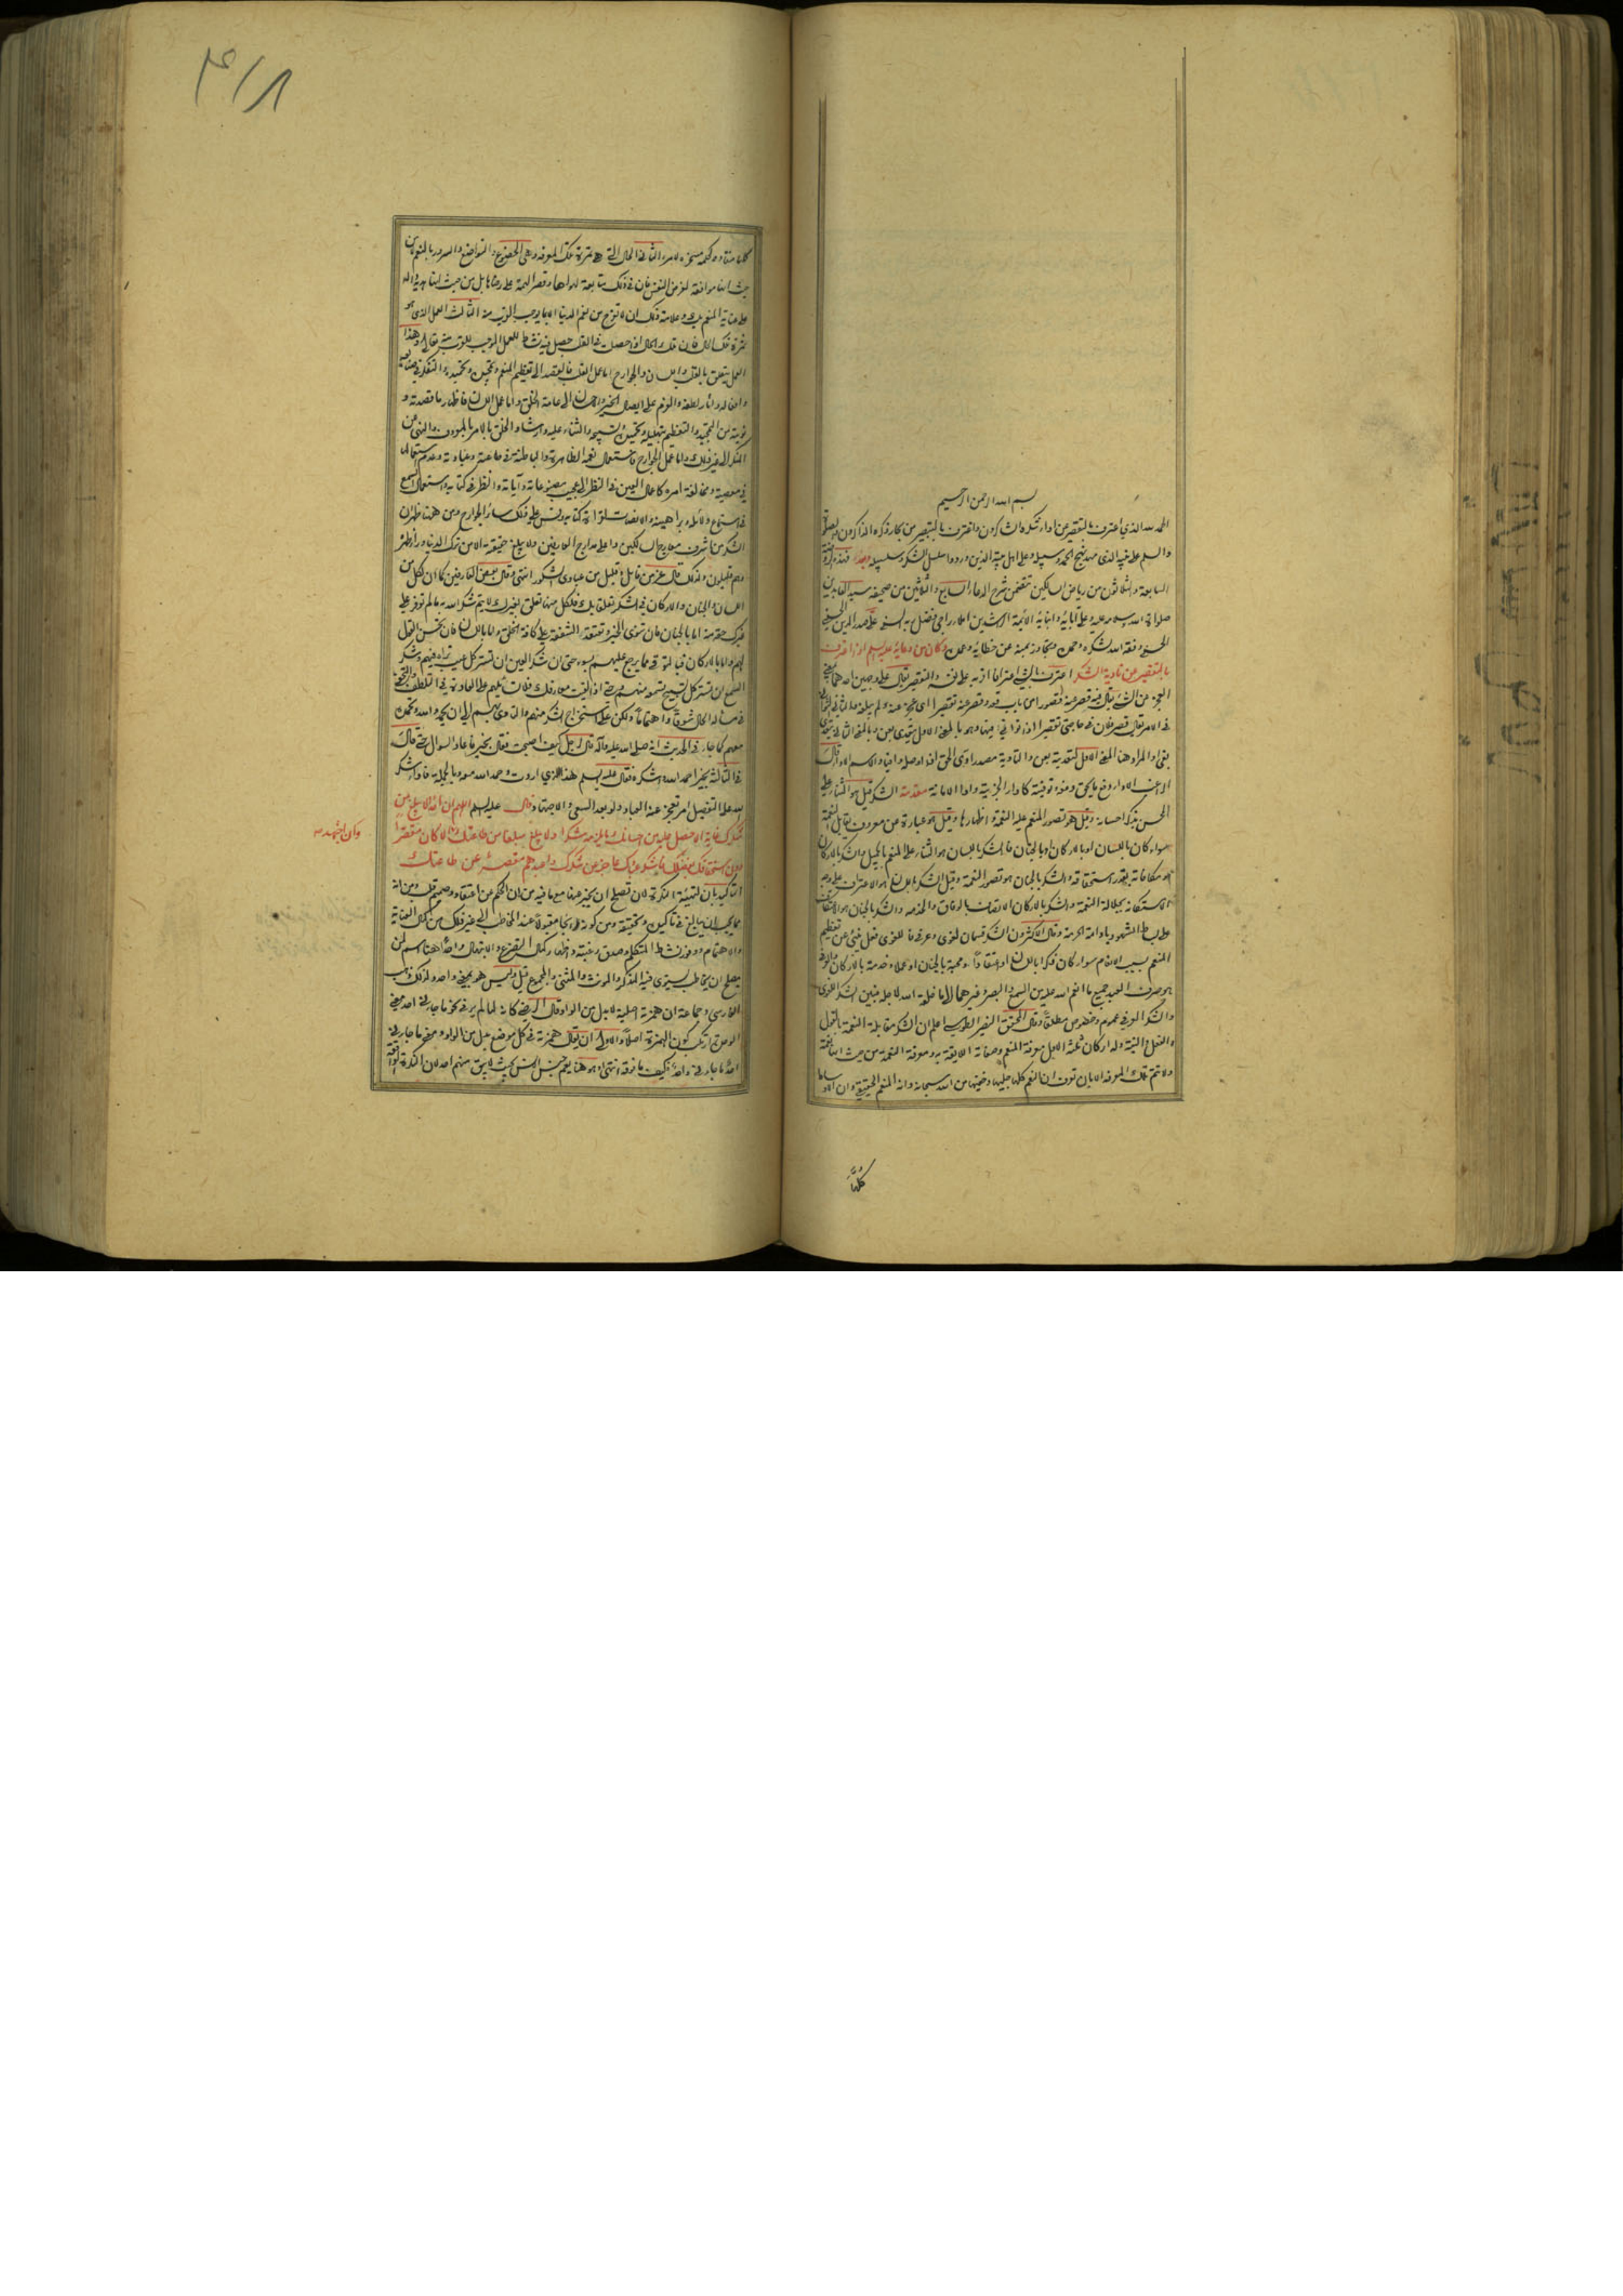 بسم الله الرحمن الرحيم
الحمد لله الذي اعترف بالتقصير عن اداء شكره الشاكرون واعترف بالتقصير من بحار ذكره الذاكرون والصلوة
والسلم على نبيه الذي مهد نهج الحمد وسبيله وعلى اهل بيته الذين وردوا سلسل الشكر وسلسبيله وبعد فهذه الروضة
السابعة والثلاثون من رياض السالكين تتضمن شرح الدعاء السابع والثلثين من صحيفة سيد العابدين
صلوات الله وسلامه عليه وعلى آبائه وابنائه الائمة الراشدين املاء راجي فضل ربه السني علي صدر الدين الحسيني
الحسني وفقه الله لشكره وحمده وتجاوز بمنه عن خطائه وعمده وكان من دعائه عليه السلم اذا اعترف
بالتقصير عن تادية الشكر اعترف بالشي اعترافا اقر به على نفسه والتقصير يقال على وجهين احدهما بمعنى
العجز عن الشئ يقال قصر عنه قصورا من باب قعد وقصر عنه تقصيرا اي عجز عنه ولم يبلغه والثاني التواني
في الامر يقال قصر فلان في حاجتي تقصيرا اذا توانى فيها وهو بالمعنى الاول يتعدى بعن وبالمعنى الثاني يتعدى
بفي والمراد هنا المعنى الاول لتعديه بعن والتادية مصدر ادى الحق اذا اوصله وافيا والاسم الاداء قال
الراغب الاداء دفع ما يحق دفعه وتوفيته كاداء الجزية واداء الامانة مقدمة الشكر قيل هو الثناء على
المحسن بذكر احسانه وقيل هو تصور المنعم عليه النعمة واظهارها وقيل هو عبارة عن معروف يقابل النعمة
سواء كان باللسان او بالاركان او بالجنان فالشكر باللسان هو الثناء على المنعم بالجميل والشكر بالاركان
هو مكافاته بقدر استحقاقه والشكر بالجنان هو تصور النعمة وقيل الشكر باللسان هو الاعتراف على وجه
الاستكانة بجلالة النعمة والشكر بالاركان الاتصاف بالوفاق والخدمة والشكر بالجنان هو الاعتكاف
على بساط الشهود بادامة الحرمة وقال الاكثرون الشكر قسمان لغوي وعرفي فاللغوي فعل ينبئ عن تعظيم
المنعم بسبب الانعام سواء كان ذكرا باللسان او اعتقادا ومحبة بالجنان او عملا وخدمة بالاركان والعرفي
هو صرف العبد جميع ما انعم الله عليه من السمع والبصر وغيرهما الى ما خلقه الله لاجله فبين الشكر اللغوي
والشكر العرفي عموم وخصوص مطلقا وقال المحقق النصير الطوسي اعلم ان الشكر مقابلة النعمة بالقول
والفعل والنية وله اركان ثلثة الاول معرفة المنعم وصفاته اللايقة به ومعرفة النعمة من حيث انها نعمة
ولا تتم تلك المعرفة الا بان تعرف ان النعم كلها جليها وخفيها من الله سبحانه وانه المنعم الحقيقي وان الاوساط
كلها
كلها منقادة لحكمه مسخرة لامره الثاني الحال التي هي ثمرة تلك المعرفة وهي الخضوع والتواضع والسرور بالنعم من
حيث انها موافقة لغرض النفس فان في ذلك متابعة لهواها وقصر الهمة على رضاها بل من حيث انها هدية دالة
على عناية المنعم بك وعلامة ذلك ان لا تفرح من نعم الدنيا الا بما يوجب القرب منه الثالث العمل الذي هو
ثمرة تلك الحال فان تلك الحال اذا حصلت في القلب حصل فيه نشاط للعمل الموجب للقرب منه تعالى وهذا
العمل يتعلق بالقلب واللسان والجوارح اما عمل القلب فالقصد الى تعظيم المنعم وتمجيده وتحميده والتفكر في صنائعه
وافعاله وآثار لطفه والعزم على ايصال الخير والاحسان الى عامة الخلق واما عمل اللسان فاظهار ما قصدته و
نويته من التمجيد والتعظيم بتهليله وتحميده وتسبيحه والثناء عليه وارشاد الخلق بالامر بالمعروف والنهي عن
المنكر الى غير ذلك واما عمل الجوارح فاستعمال نعمه الظاهرة والباطنة في طاعته وعبادته وعدم استعمالها
في معصيته ومخالفة امره كاعمال العين في النظر الى عجيب مصنوعاته وآياته والنظر في كتابه واستعمال السمع
في استماع دلائله وبراهينه والانصات لقراءة كتابه وقس على ذلك سائر الجوارح ومن ههنا ظهر ان
الشكر من اشرف معارج السالكين واعلى مدارج العارفين ولا يبلغ حقيقته الا من ترك الدنيا وراء ظهره
وهم قليلون ولذلك قال عز من قائل وقليل من عبادي الشكور انتهى وقال بعض العارفين كما ان لكل من
اللسان والجنان والاركان في الشكر تعلق بك فلكل منها تعلق بغيرك لا يتم شكر الله به ما لم توفر على
غيرك حقه منه اما بالجنان فان تنوي الخير وتعتقد الشفقة على كافة الخلق واما باللسان فان تحسن القول
لهم واما بالاركان فبالتوقي مما يرجع عليهم بسوء حتى ان شكر العين ان تستر كل عيب تراه فيهم وشكر
السمع ان تستر كل قبيح تسمعه منهم
معهم كما جاء في الحديث انه صلى الله عليه وآله قال لرجل كيف اصبحت فقال بخير فاعاد السؤال حتى قال
في الثالثة بخير احمد الله واشكره فقال عليه السلم هذا الذي اردت وحمد الله معه وبالجملة فاداء شكر
الله على التفصيل امر تعجز عنه العباد ولو بعد السعي والاجتهاد وقال عليه السلم اللهم ان احدا لا يبلغ من
شكرك غاية الا حصل عليه من احسانك ما يلزمه شكرا ولا يبلغ مبلغا من طاعتك وان اجتهد الا كان مقصرا
دون استحقاقك بفضلك فاشكر عبادك عاجز عن شكرك واعبدهم مقصر عن طاعتك
وان اجتهد صح
التاكيد بان
مما يجب ان يبالغ في تاكيده وتحقيقه
والاهتمام ووفور نشاط المتكلم وصدق رغبته واظهار كمال التضرع والابتهال واحد ههنا اسم لمن
يصلح ان يخاطب يستوي فيه المذكر والمونث والمثنى والمجموع قيل وليس هو بمعنى واحد ولذلك ذهب
الفارسي وجماعة ان همزته اصلية لا بدل من الواو وقال الرضي كانه لما لم ير في نحو ما جاءني احد معنى
الوحدة ارتكب كون الهمزة اصلا والاولى ان يقال همزته في كل موضع بدل من الواو ومعنى ما جاءني
احد ما جاءني واحد فكيف ما فوقه انتهى وهو هنا يعم جنس الانس بحيث لا يبقى منهم احد لان النكرة الواقعة